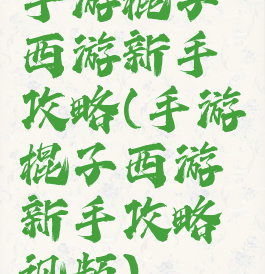 手游棍子
西游新手
攻略(手游
棍子西游
新手攻略
视频)